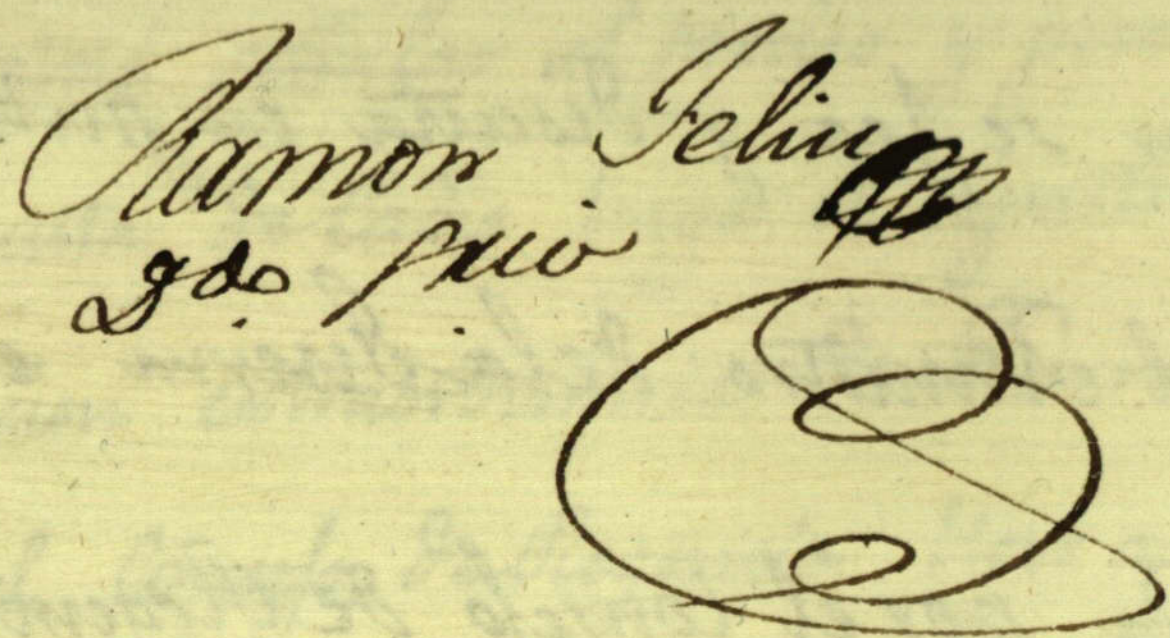 Ramon Feliu
Ddo Srio